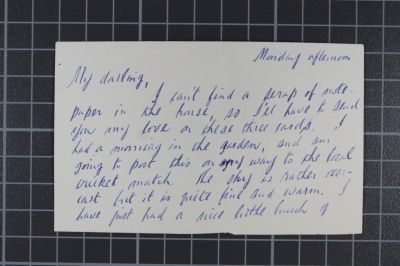 Monday afternoon
My darling,
I can't find a scrap of note-
paper in the house, so I'll have to send
you my love on these three cards. I
had a morning in the garden, and am
going to post this on my way to the local
cricket match. The sky is rather over-
cast but it is quite fine and warm. I
have just had a nice little bunch of